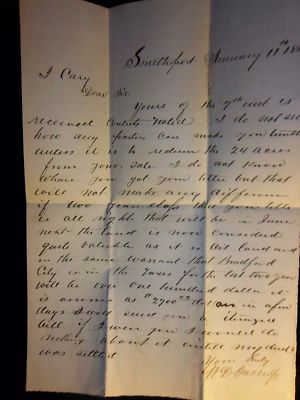 Smethport January 11th 18
J Cary
Dear Sir
Yours of the 7th inst is
received Contents Noted I do not see
how any parties can make you trouble
unless it is to redeem the 24 acres
from your sale I do not know
whare you got your letter but that
will not make any
if two years
is all right that will be in June
next the land is now considered
quite valuable as it is oil land and
in the same warrant that Bradford
City is in the Taxes for the last two years
will be over one hundred dollars it
is as $2700.00 in a few
days I will send you a
bill if I were you I would do
nothing about it until
was settled
Yours Truly
W D